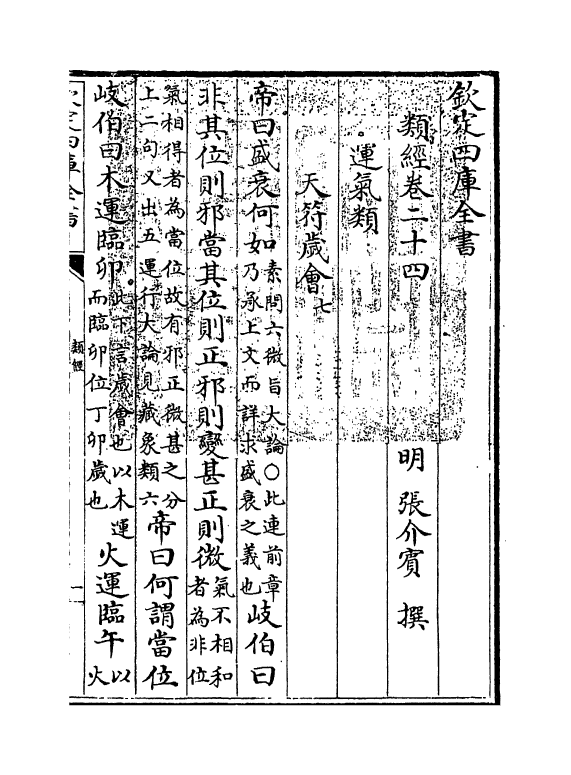 欽定四庫全書
類經卷二十四
明 張介賓 撰
運氣類
天符歲會七
帝曰盛衰何如素問六微旨大論○此連前章乃承上文而詳求盛衰之義也岐伯曰
非其位則邪當其位則正邪則變甚正則微氣不相和者為非位
氣相得者為當位故有邪正微甚之分上二句又出五運行大論見藏象類六帝曰何謂當位
岐伯曰木運臨卯此下言歲會也以木運而臨卯位丁卯歲也火運臨午以火
類經
一